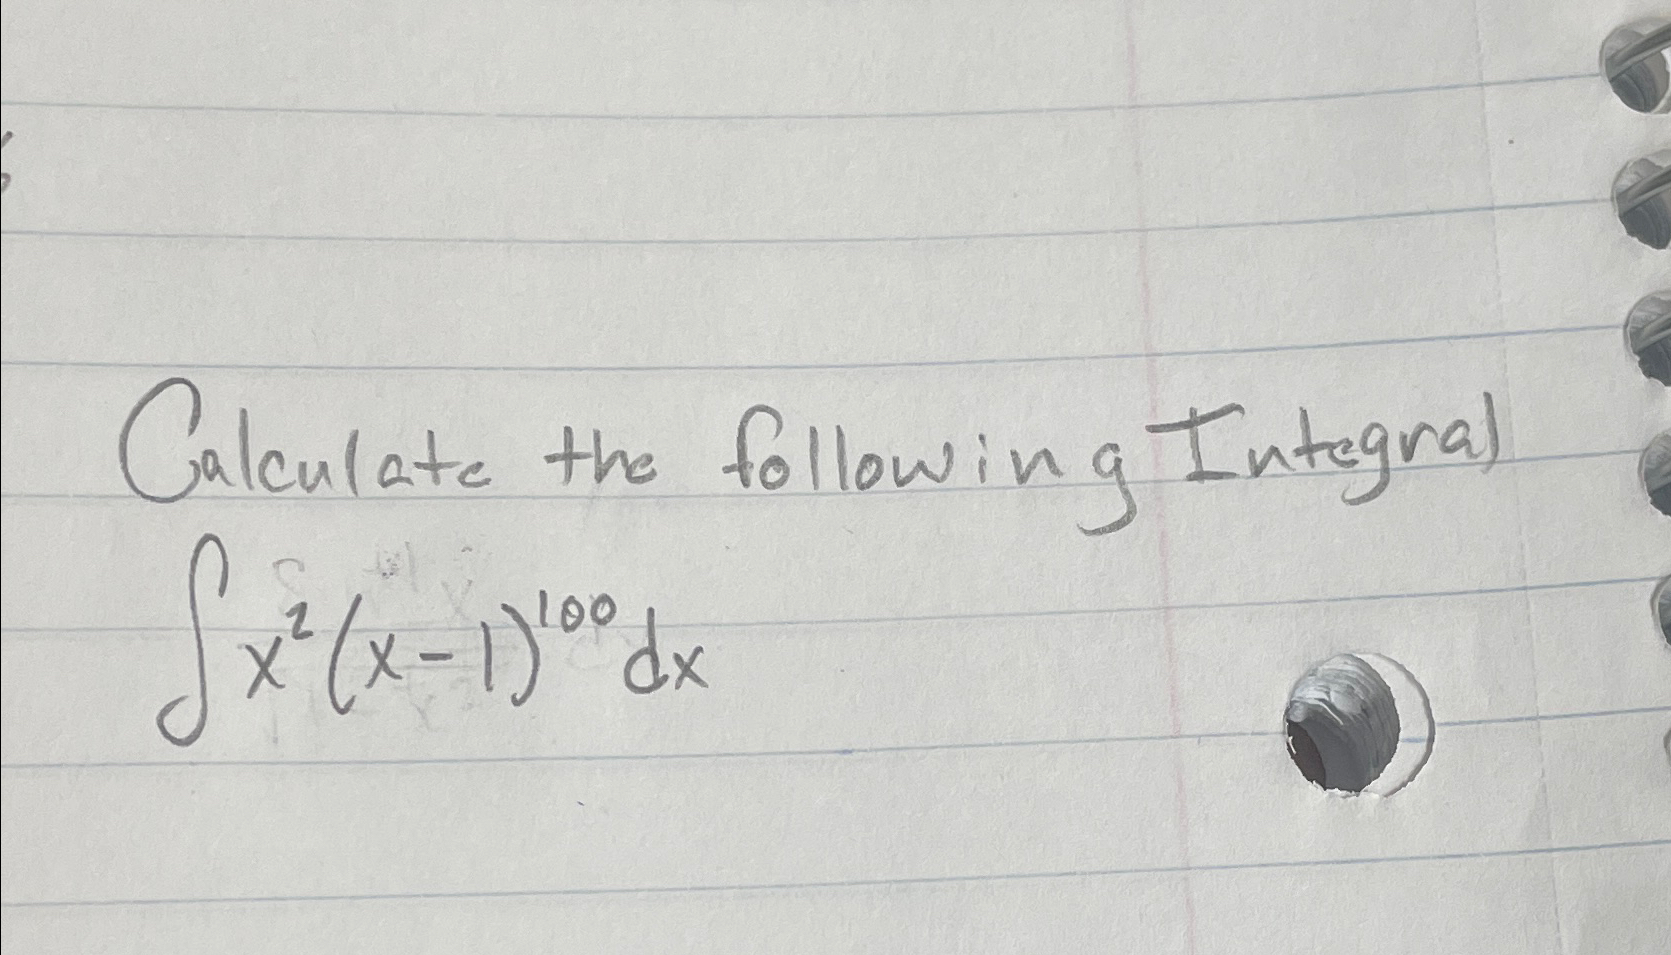 Calculate the following Integral
∫x²(x-1)¹⁰⁰dx